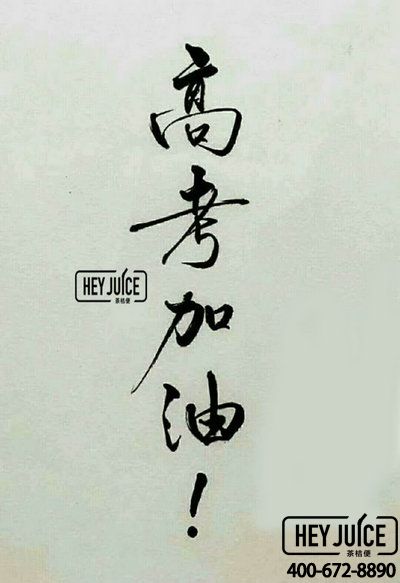 高考加油！
HEY JUICE
茶桔便
HEY JUICE
茶桔便
400-672-8890